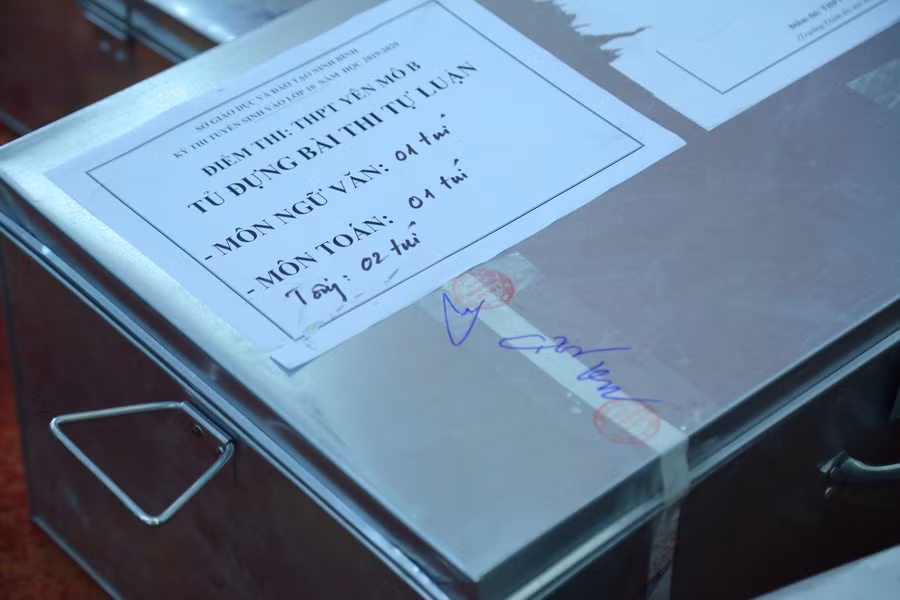 SỞ GIÁO DỤC VÀ ĐÀO TẠO NINH BÌNH
KỲ THI TUYỂN SINH VÀO LỚP 10 NĂM HỌC 2019-2020
ĐIỂM THI: THPT YÊN MÔ B
TỦ ĐỰNG BÀI THI TỰ LUẬN
- MÔN NGỮ VĂN: 01 túi
- MÔN TOÁN: 01 túi
Tổng: 02 túi